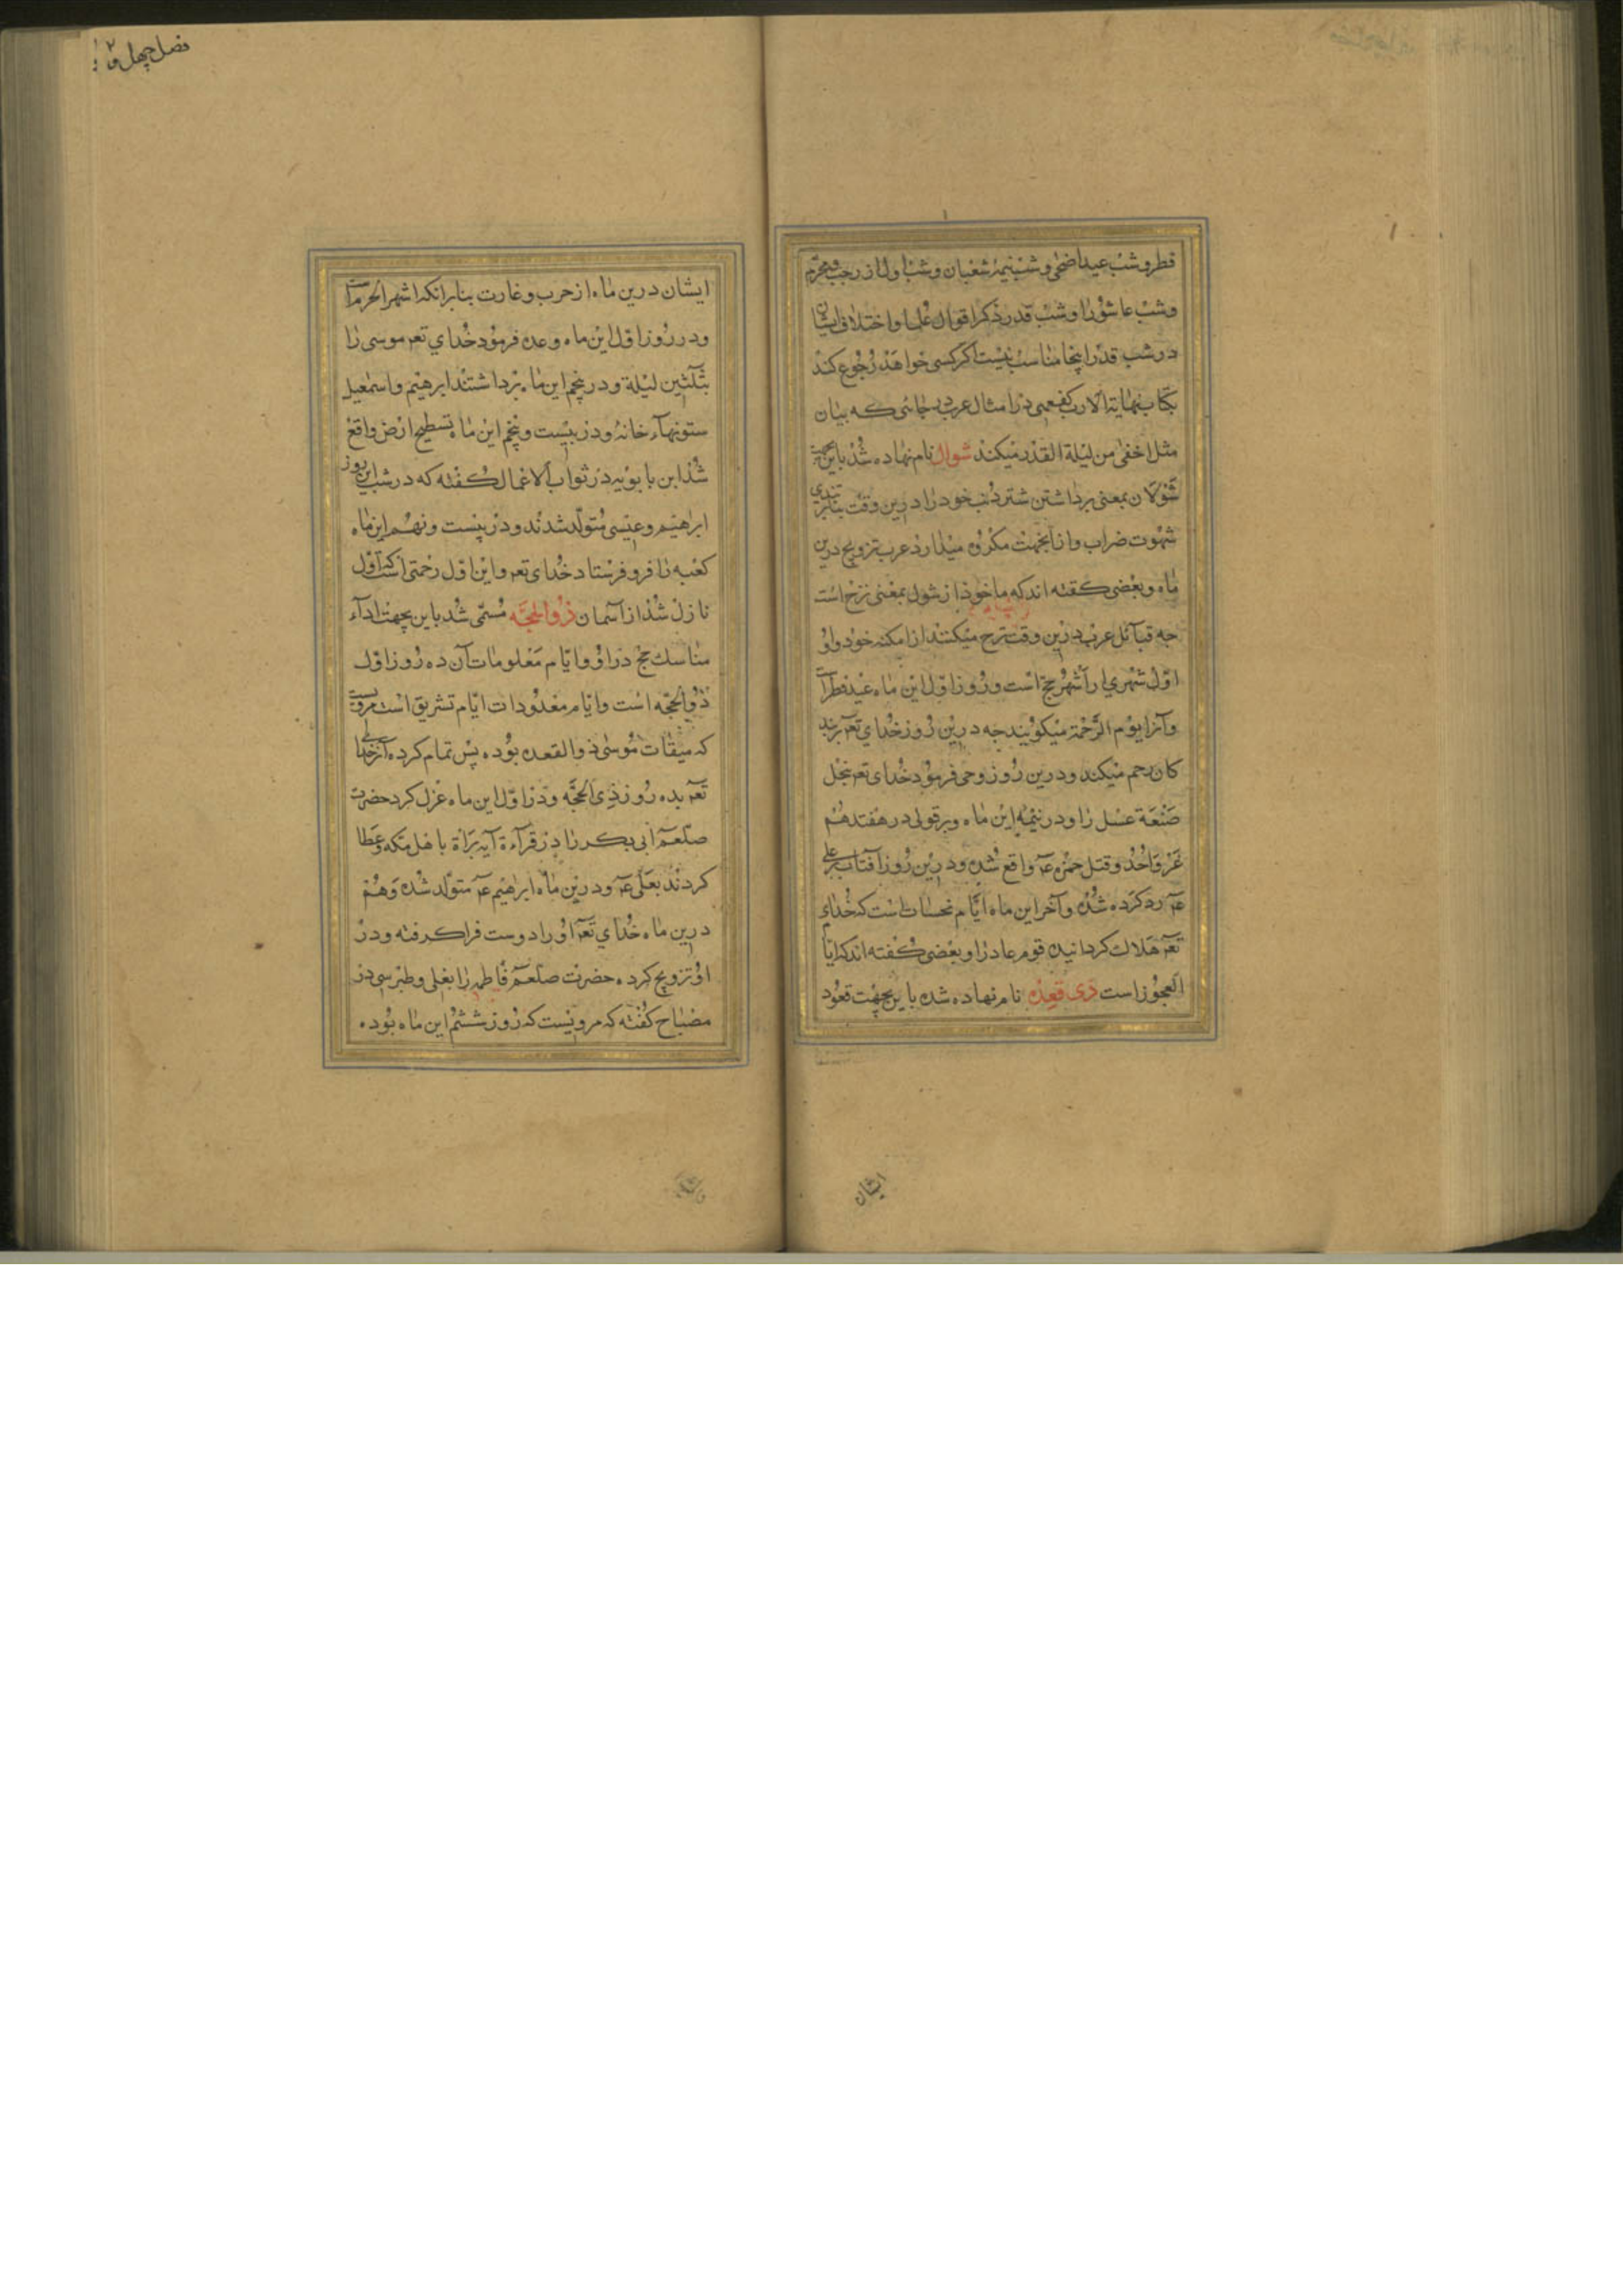 فصل چهل و ۲
فطر و شب عید اضحی و شب نیمهٔ شعبان و شب اول از رجب و محرم
و شب عاشورا و شب قدر ذکر اقوال علما و اختلاف ایشان
در شب قدر اینجا مناسب نیست اگر کسی خواهد رجوع کند
بکتاب نهایة الارب کفعمی در امثال عرب بجائی که بیان
مثل اخفی من لیلة القدر میکند شوال نام نهاده شد باین جهة
شولان بمعنی برداشتن شتر ذنب خود را درین وقت بنابر تندی
شهوت ضراب و از اینجهت مکروه میدارد عرب تزویج درین
ماه و بعضی گفته اند که ماخوذ از شول بمعنی نزح است
چه قبائل عرب درین وقت نزح میکنند از امکنه خود و او
اول شهری از اشهر حج است و روز اول این ماه عید فطر است
و آنرا یوم الرحمة میگویند چه درین روز خدای تعه بر بند
کان رحم میکند و درین روز وحی فرمود خدای تعه بنحل
صنعة عسل را و در نیمهٔ این ماه و بر قولی در هفتدهم
غزوة احد و قتل حمزه عه واقع شده و درین روز آفتاب بر علی
عه رد کرده شده و آخر این ماه ایام نحسات است که خدای
تعه هلاک گردانیده قوم عاد را و بعضی گفته اند که ایام
العجوز است ذی قعده نام نهاده شده باین جهت قعود
ایشان
ایشان درین ماه از حرب و غارت بنابر انکه اشهر الحرم است
و در روز اول این ماه وعده فرمود خدای تعه موسی را
بثلثین لیلة و در پنجم این ماه برداشتند ابرهیم و اسمعیل
ستونهاء خانه و در بیست و پنجم این ماه تسطیح ارض واقع
شد ابن بابویه در ثواب الاعمال گفته که در شب این روز
ابراهیم و عیسی متولد شدند و در بیست و نهم این ماه
کعبه را فرو فرستاد خدای تعه و این اول رحمتی است که اول
نازل شد از آسمان ذوالحجه مسمی شد باین جهت اداء
مناسک حج در او و ایام معلومات آن ده روز اول
ذوالحجه است و ایام معدودات ایام تشریق است مرویست
که میقات موسی ذوالقعده بوده پس تمام کرده آنرا خدای
تعه بده روز ذی الحجه و در اول این ماه عزل کرد حضرت
صلعم ابی بکر را در قرآءة آیه براة با هل مکه و عطا
کردند بعلی عه و درین ماه ابراهیم عه متولد شده و هم
درین ماه خدای تعه او را دوست فرا گرفته و در
او تزویج کرده حضرت صلعم فاطمه را بعلی و طبرسی در
مصباح گفته که مرویست که روز ششم این ماه بوده